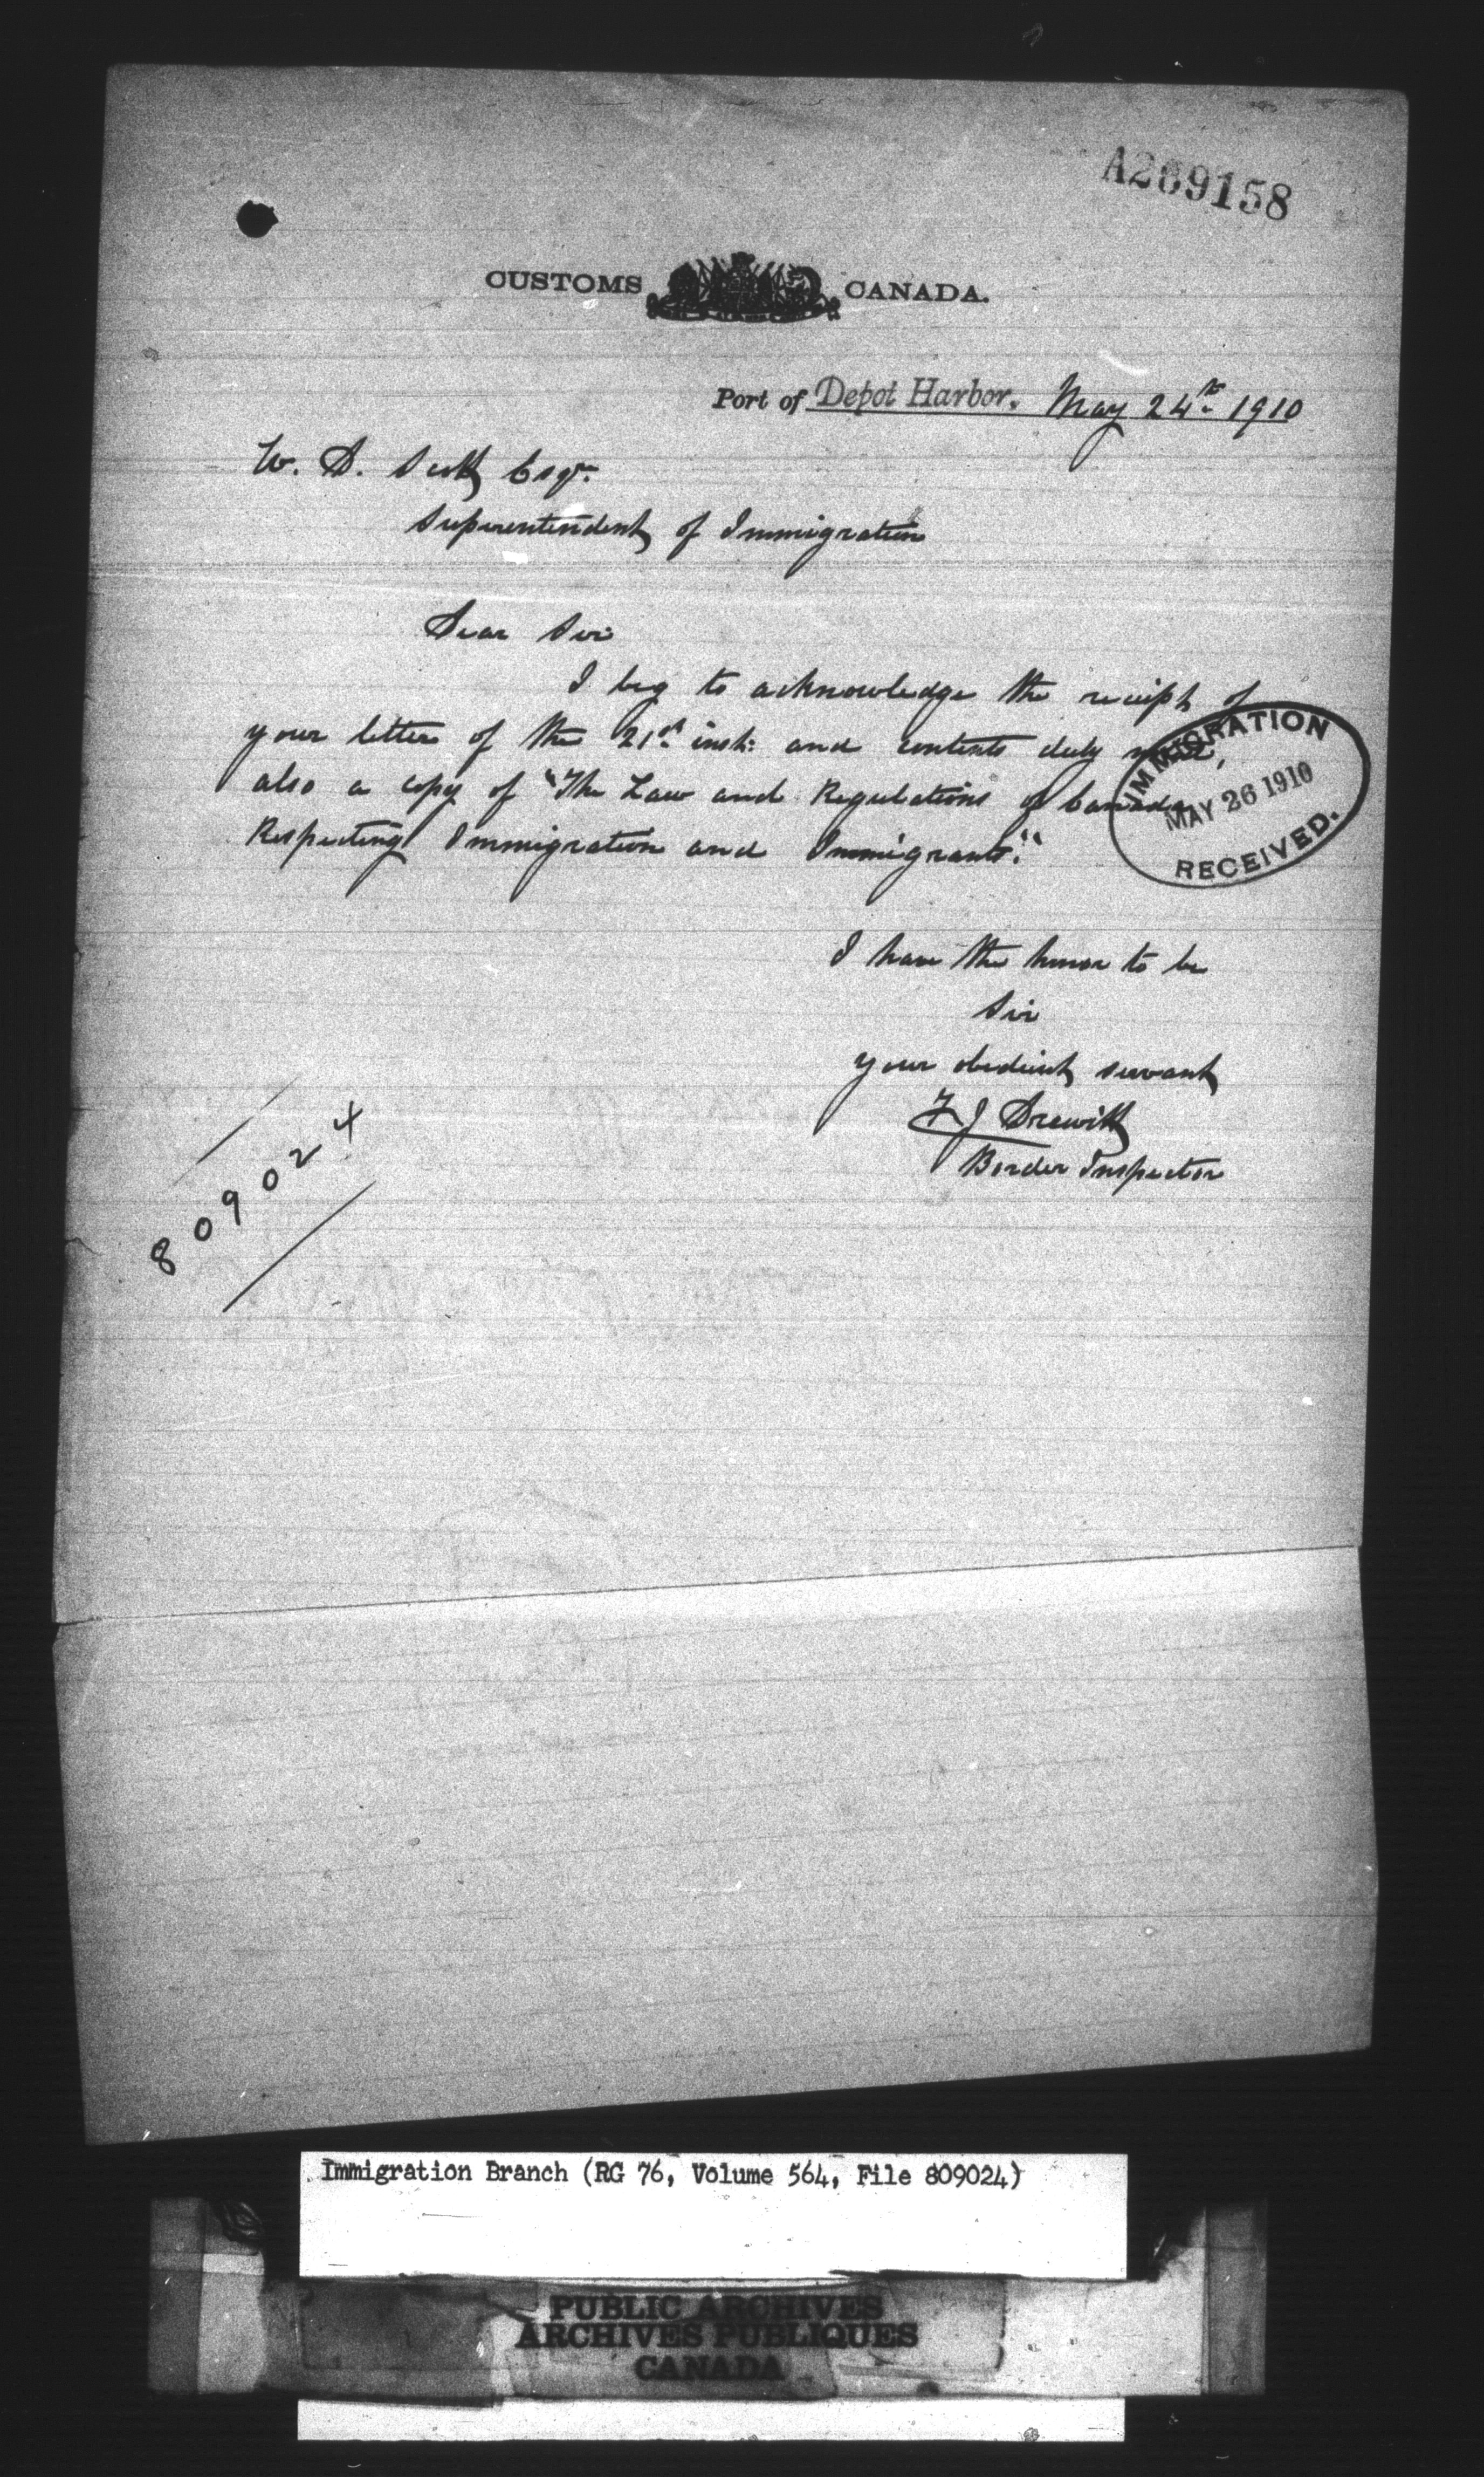 A269158
CUSTOMS CANADA.
Port of Depot Harbor. May 24th 1910
W. D. Scott Esqr.
Superentendent of Immigration
Dear Sir
I beg to acknowledge the receipt of
your letter of the 21st inst: and contents duly noted,
also a copy of "The Law and Regulations of Canada
Respecting Immigration and Immigrants."
IMMIGRATION
MAY 26 1910
RECEIVED.
I have the honor to be
Sir
your obedient servant
F J Drewitt
Border Inspector
809024
Immigration Branch (RG 76, Volume 564, File 809024)
PUBLIC ARCHIVES
ARCHIVES PUBLIQUES
CANADA